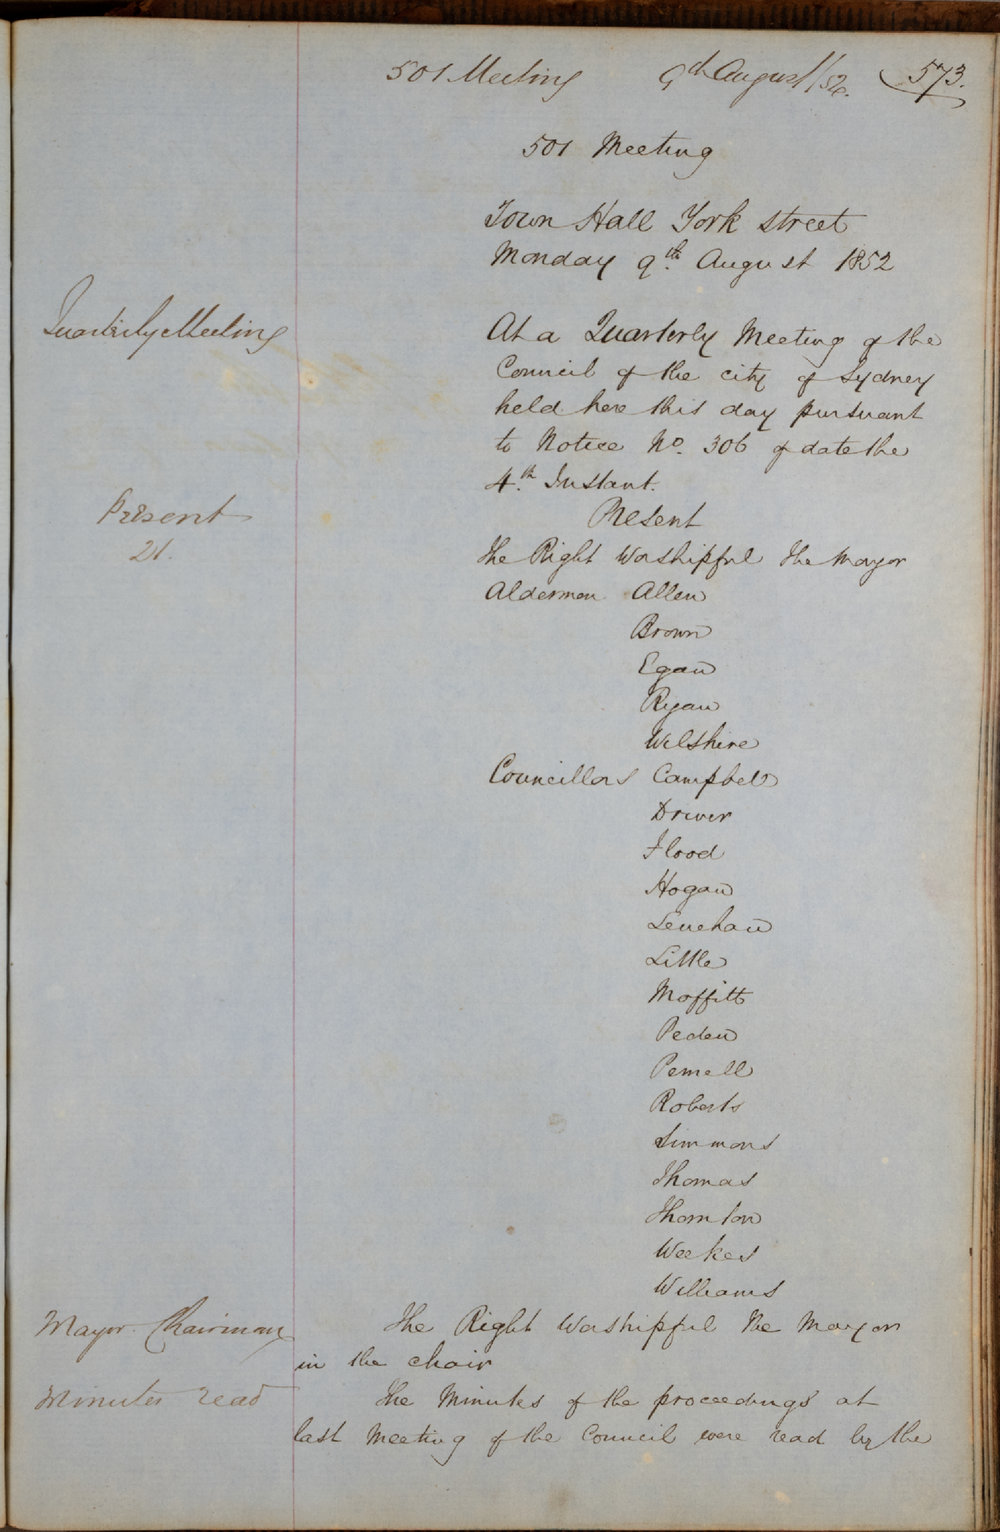 501 Meeting 9th August/52. 573.
501 Meeting
Town Hall York Street
Monday 9th. August 1852
Quarterly Meeting
At a Quarterly Meeting of the
Council of the city of Sydney
held here this day pursuant
to Notice No. 306 of date the
4th. Instant.
Present
21.
Present
The Right Worshipful The Mayor
Aldermen Allen
Brown
Egan
Ryan
Wilshire
Councillors Campbell
Driver
Flood
Hogan
Lenehan
Little
Moffitt
Peden
Pemell
Roberts
Simmons
Thomas
Thornton
Weekes
Williams
Mayor Chairman
The Right Worshipful The Mayor
in the chair
Minutes read
The Minutes of the proceedings at
last Meeting of the Council were read by the